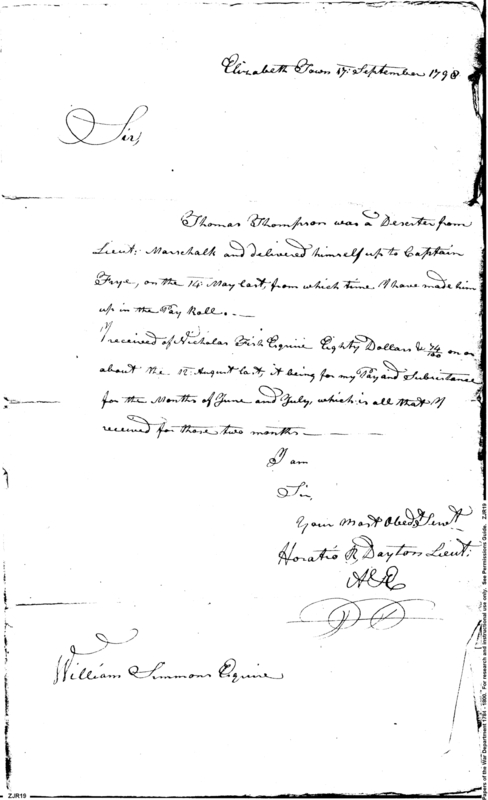 Elizabeth Town 17: September 1798
Sir,
Thomas Thompson was a Deserter from
Lieut: Marschalk and delivered himself up to Captain
Frye, on the 14 May last, from which time I have made him
up in the Pay Roll. —
I received of Nicholas Fish Esquire Eighty Dollars & 74/100 on or
about the 12 August last, it being for my Pay and Subsistance
for the Months of June and July, which is all that I
received for those two months — —
I am
Sir,
Your Most Obedt Servt
Horatio R. Dayton Lieut:
A&E
William Simmons Esquire
ZJR19
Papers of the War Department 1784 - 1800. For research and instructional use only. See Permissions Guide. ZJR19